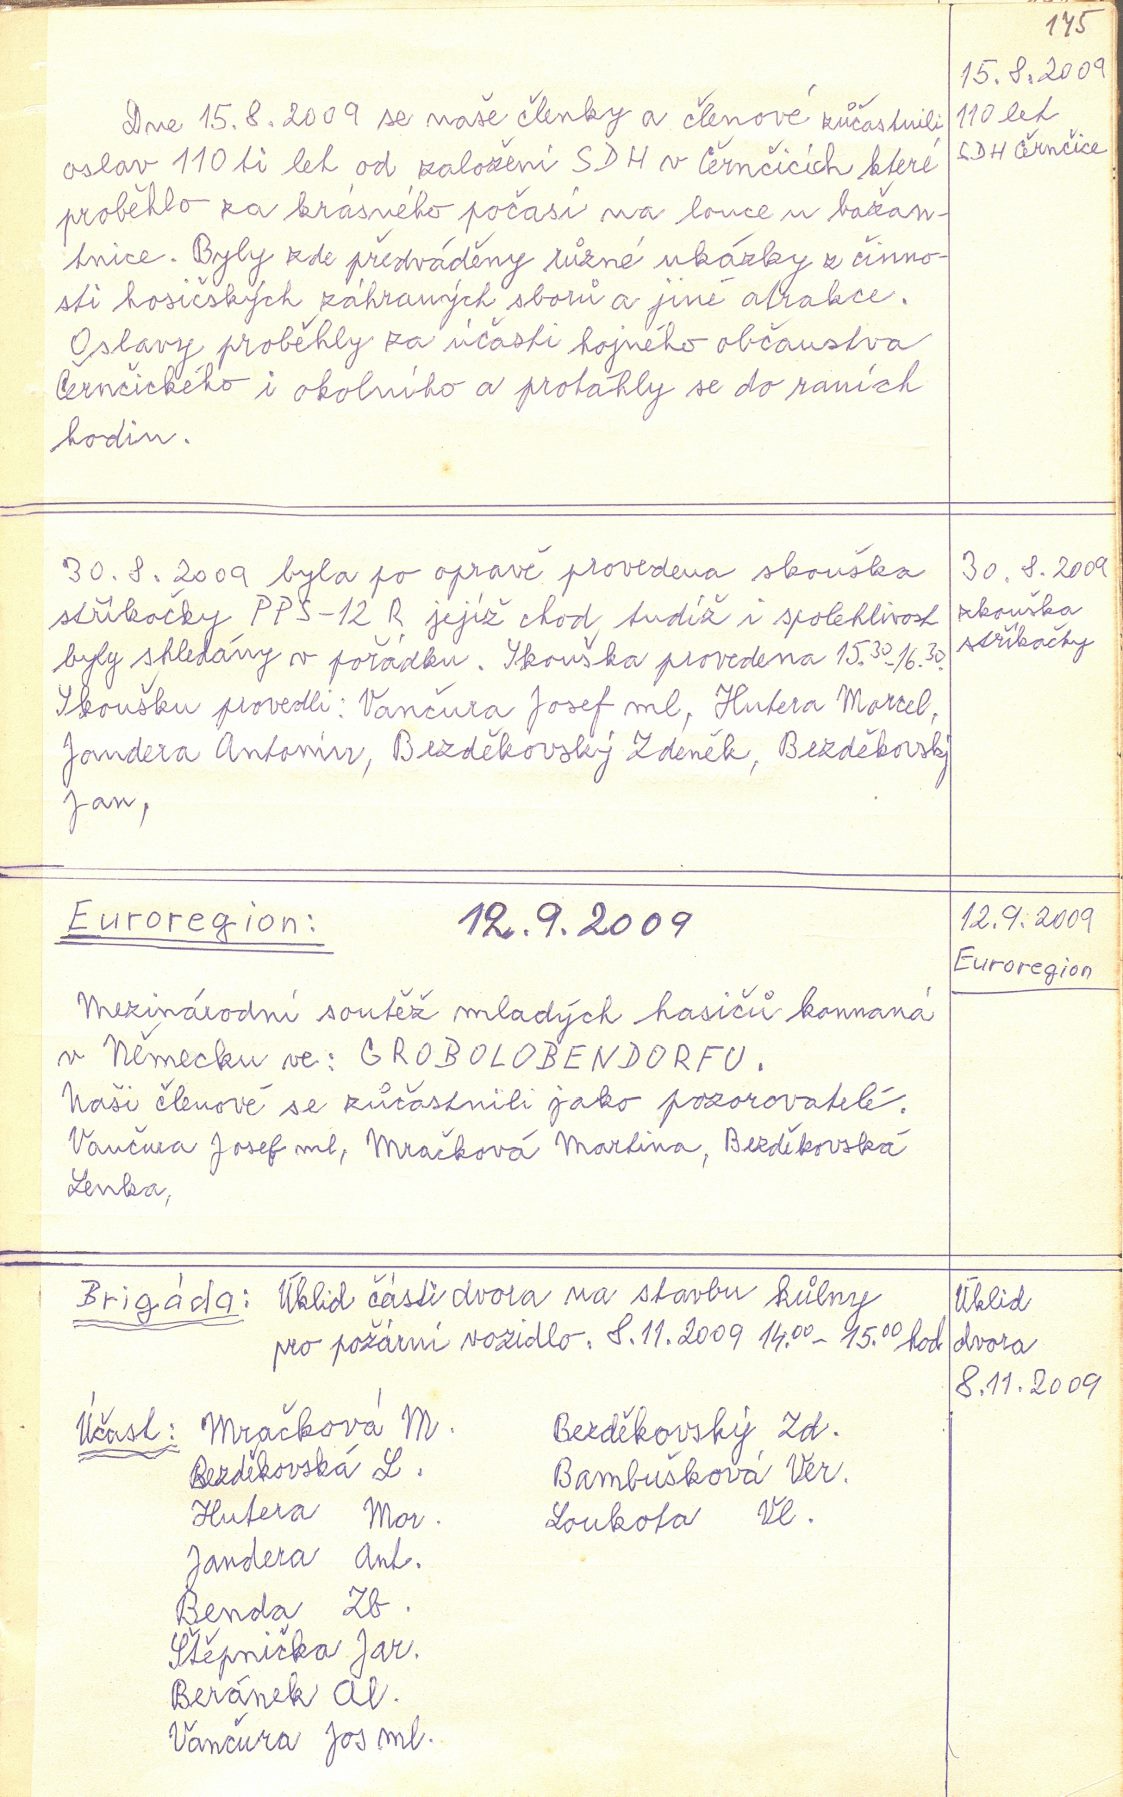 175
15.8.2009
110 let
SDH Černčice
Dne 15.8.2009 se naše členky a členové zůčastnili
oslav 110 ti let od založení SDH v Černčicích které
proběhlo za krásného počasí na louce u bažan-
tnice. Byly zde předváděny různé ukázky z činno-
sti hosičských záhraných sborů a jiné atrakce.
Oslavy proběhly za účasti hojného občanstva
Černčického i okolního a protáhly se do raních
hodin.
30.8.2009 byla po opravě provedena skouška
stříkačky PPS-12 R jejíž chod, tudíž i spolehlivost
byly shledány v pořádku. Skouška provedena 15.30-16.30.
Skoušku provedli: Vančura Josef ml, Hutera Marcel,
Jandera Antonín, Bezděkovský Zdeněk, Bezděkovský
Jan,
30.8.2009
zkouška
stříkačky
Euroregion: 12.9.2009
Mezinárodní soutěž mladých hasičů konnaná
v Německu ve: GROBOLOBENDORFU.
Naši členové se zůčastnili jako pozorovatelé.
Vančura Josef ml, Mračková Martina, Bezděkovská
Lenka,
12.9.2009
Euroregion
Brigáda: Úklid části dvora na stavbu kůlny
pro požární vozidlo. 8.11.2009 14.00 - 15.00 hod
Úklid
dvora
8.11.2009
Účast: Mračková M. Bezděkovský Zd.
Bezděkovská L. Bambušková Ver.
Hutera Mar. Loukota Vl.
Jandera Ant.
Benda Zb.
Štěpnička Jar.
Beránek Al.
Vančura Jos ml.